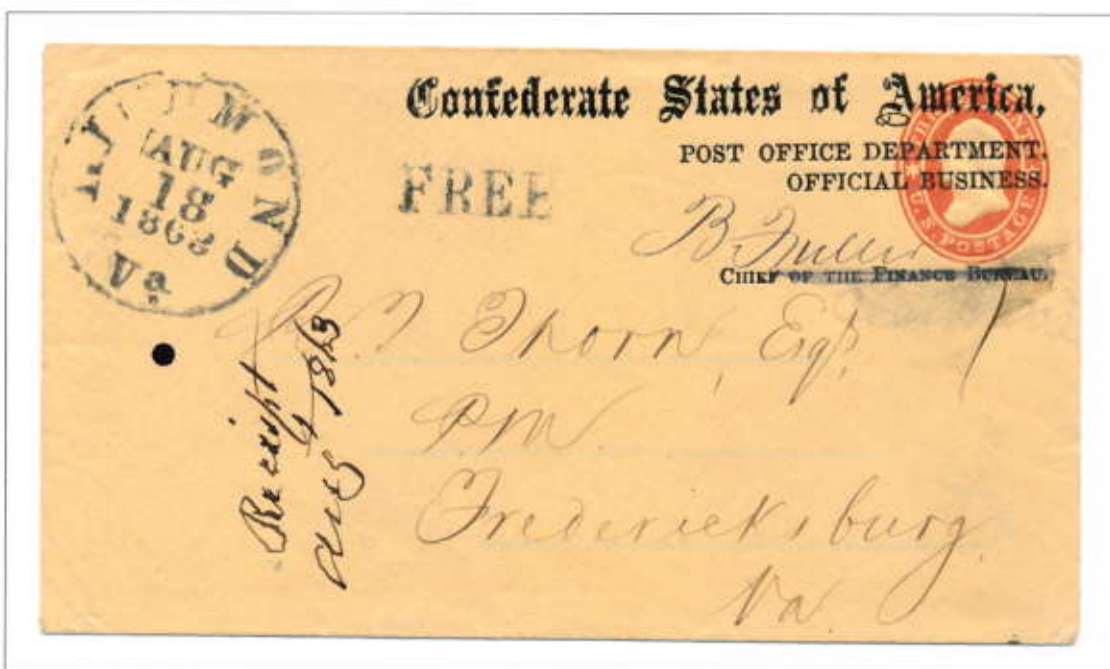 RICHMOND
AUG
18
1863
Va.
Confederate States of America,
POST OFFICE DEPARTMENT.
OFFICIAL BUSINESS.
THREE CENTS
U.S. POSTAGE
FREE
B. Fuller
CHIEF OF THE FINANCE BUREAU.
R T Thorn, Esqr
P.M.
Fredericksburg
Va
Receipt
Aug 1863